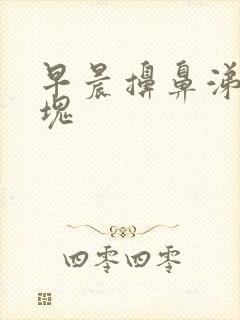 早晨擤鼻涕
块
四零四零